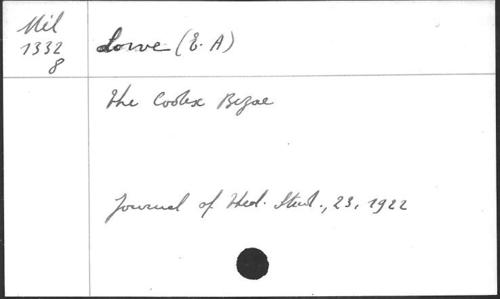 Mil
1332
8
Lowe (E. A)
The Codex Bezae
Journal of Theol. Stud., 23, 1922